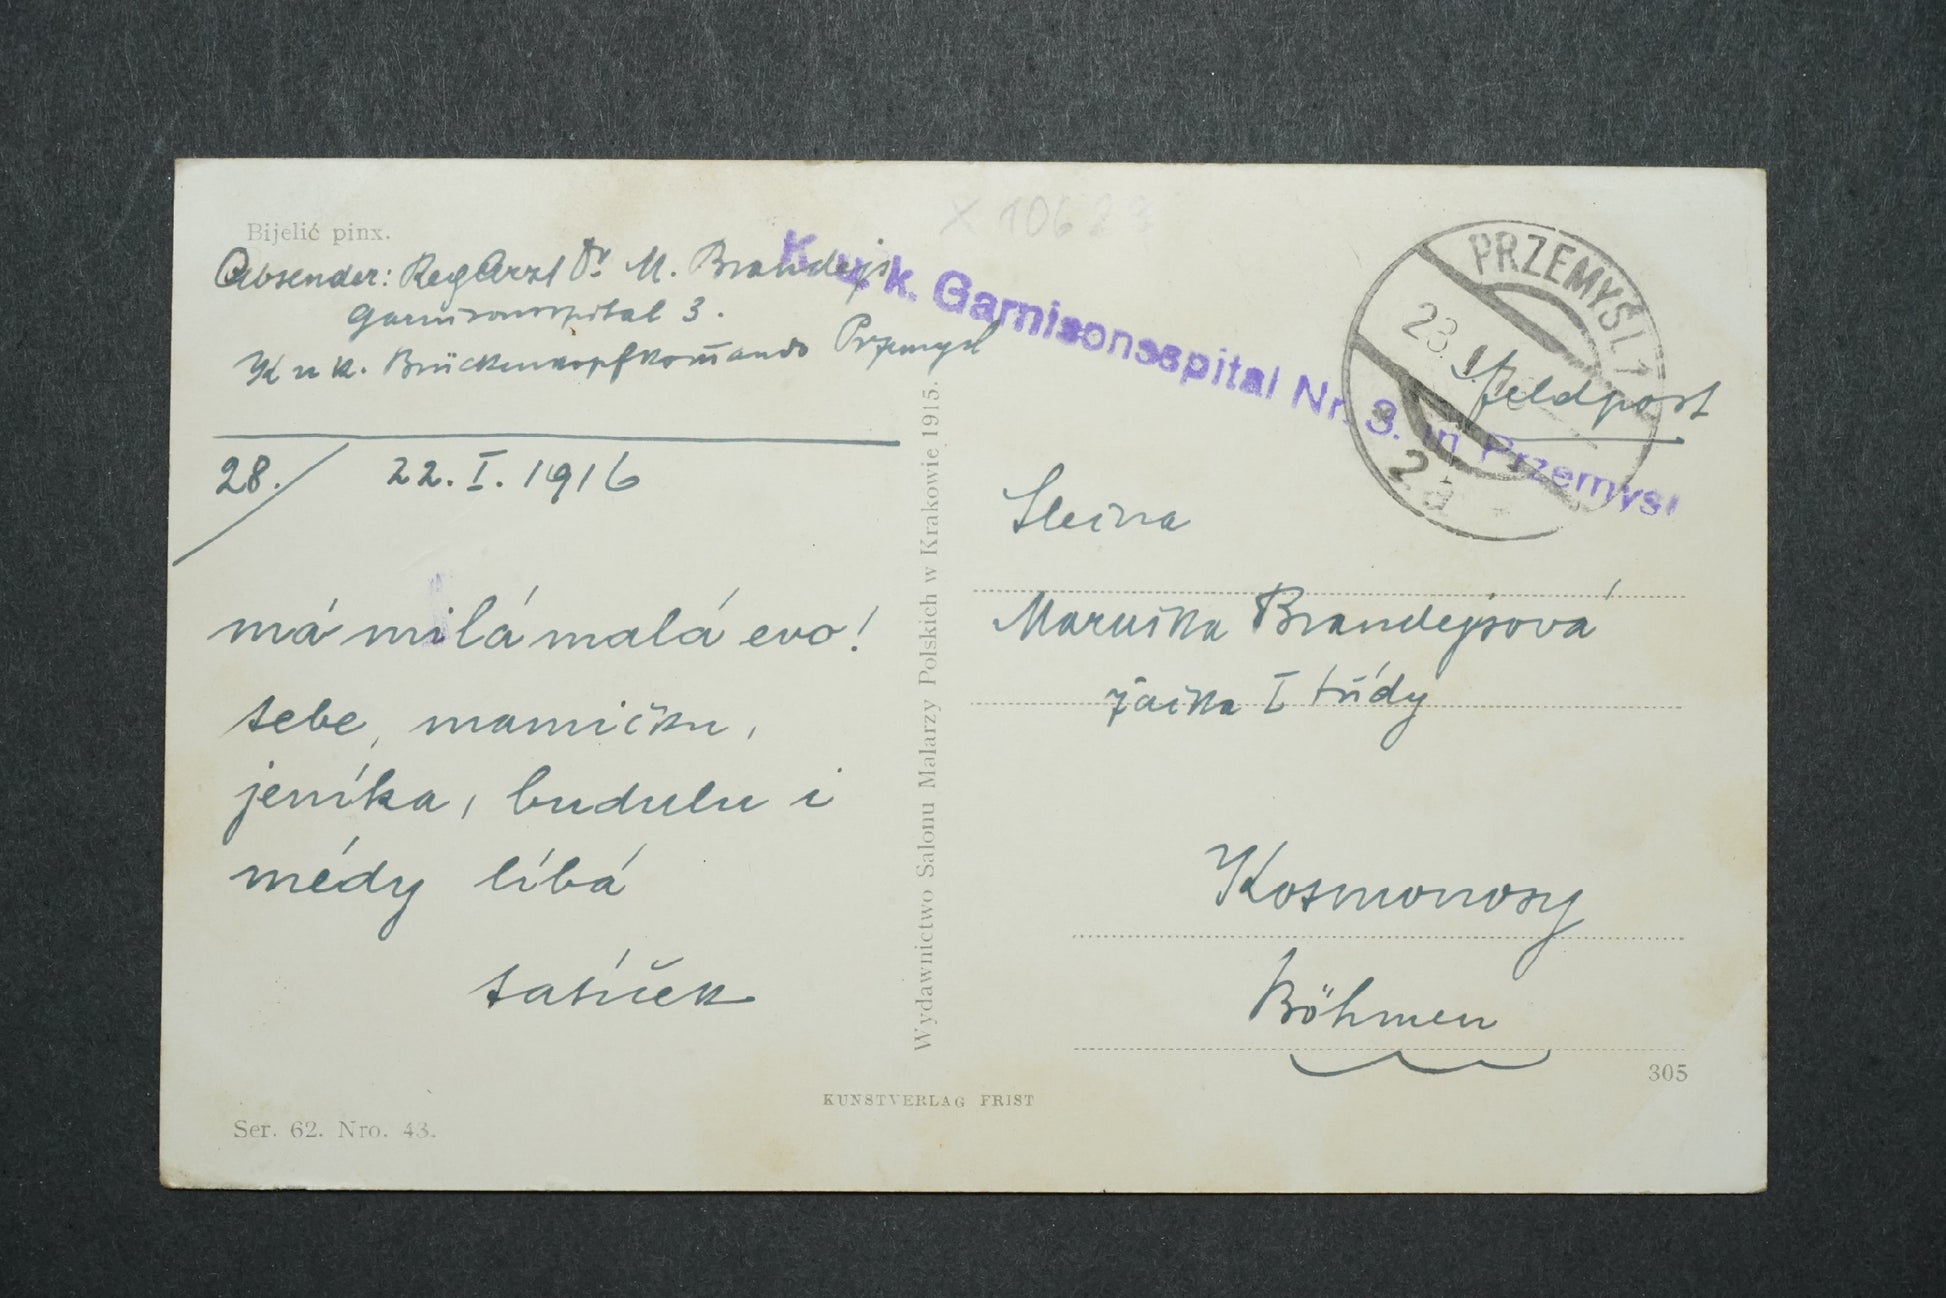 Bijelić pinx.
Absender: RegArzt Dr M. Brandejs
Garnisonsspital 3.
K u k. Brückenkopfkom̄ando Przemysl
28./ 22. I. 1916
má milá malá evo!
tebe, mamičku,
jeníka, budulu i
médy líbá
tatíček
Ser. 62. Nro. 43.
Wydawnictwo Salonu Malarzy Polskich w Krakowie 1915.
KUNSTVERLAG FRIST
X 1062
K. u. k. Garnisonsspital Nr. 3. in Przemysl
PRZEMYŚL 1
23. I.
2a
Feldpost
Slečna
Maruška Brandejsová
žačka I třídy
Kosmonosy
Böhmen
305